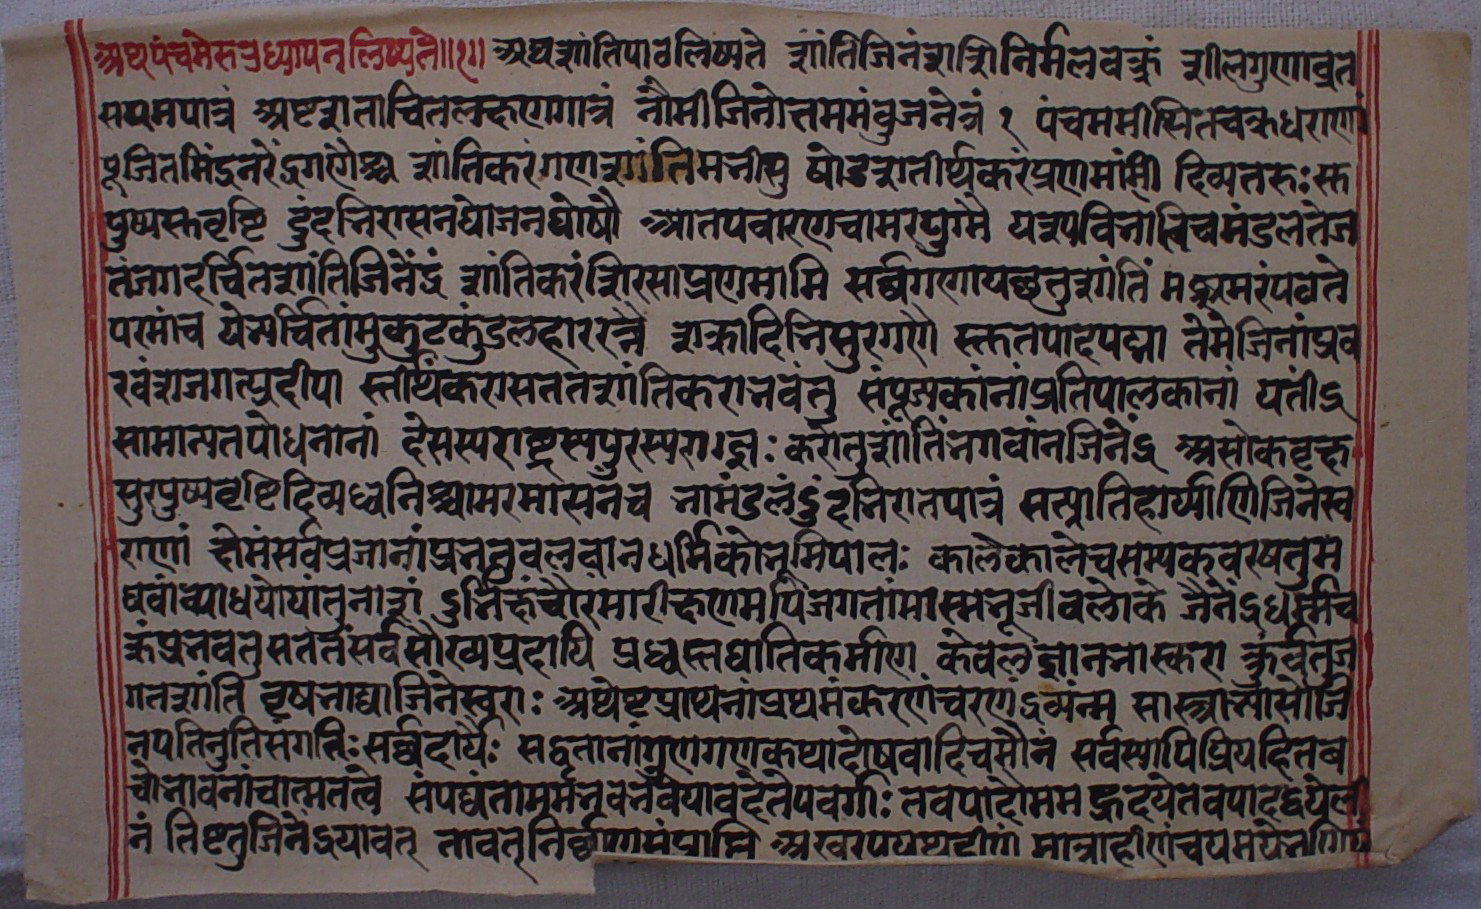 अथपंचमेरुप्रध्यापनलिष्यते॥१॥ अथशांतिपाठलिष्यते शांतिजिनंशशिनिर्मलवक्रं शीलगुणाव्रत
संयमपात्रं अष्टशताचितलक्षणगात्रं नौमीजिनोत्तममंबुजनेत्रं १ पंचममीप्सितचक्रधराणां
पूजितमिंद्रनरेंद्रगणैश्च शांतिकरंगणशांतिमनीसु षोडशतीर्थंकरंप्रणमांमी दिव्यतरुःस्त
पुष्पस्तवृष्टि दुंदभिरासनयोजनघोषौ आतपवारणचामरयुग्मै यस्यविभातिचमंडलतेज
तंजगदर्चितशांतिजिनेंद्रं शांतिकरंशिरसाप्रणमामि सर्वगणायछतुशांतिं मह्यमरंपठते
परमांच येभ्यर्चितांमुकुटकुंडलहाररत्नै शक्रादिभिसुरगणै स्तुतपादपद्मा तेमेजिनांप्रव
रवंशजगत्प्रदीपा स्तीर्थंकरासततशांतिकराभवंतु संपूजकांनांप्रतिपालकानां यतींद्र
सामान्यतपोधनानां देसस्यराष्ट्रस्यपुरस्यराज्ञः करोतुशांतिंभगवांनजिनेंद्र असोकवृक्ष
सुरपुष्पवृष्टिदिव्यध्वनिश्चामरमासनंच भामंडलंदुंदभिरातपात्रं सत्प्रातिहार्याणिजिनेस्व
राणां क्षेमंसर्वप्रजानांप्रभवतुबलवानधर्मिकोभूमिपालः कालेकालेचसम्यकवरषतुम
घवांव्याधयोयांतुनाशं दुर्भिक्षंचौरमारीक्षणमपिजगतांमास्मभूजीवलोके जैनेंद्रधर्मच
क्रंप्रभवतुसततंसर्वसौख्यप्रदायि प्रध्वस्तघातिकर्माण केवलज्ञानभास्करा कुर्वंतुज
गतशांति वृषभाद्याजिनेस्वराः अथेष्टप्राथनांप्रथमंकरणंचरणंद्रव्यंनम सास्त्राभ्यासोजि
नपतिनुतिसंगतिःसर्वदार्यैः सद्वतानांगुणगणकथादोषवादेचमौनं सर्वस्यापिप्रियहितव
चोभावनांचात्मतत्वे संपद्यंतांममभवभवेयावदेतेपवर्गाः तवपादौममह्रदयेतवपादद्वयेली
नं तिष्टतुजिनेंद्रयावत् तावत्निर्वाणसंप्राप्ति अखरपयथहीणं मात्राहीणंचयमयेभणियं